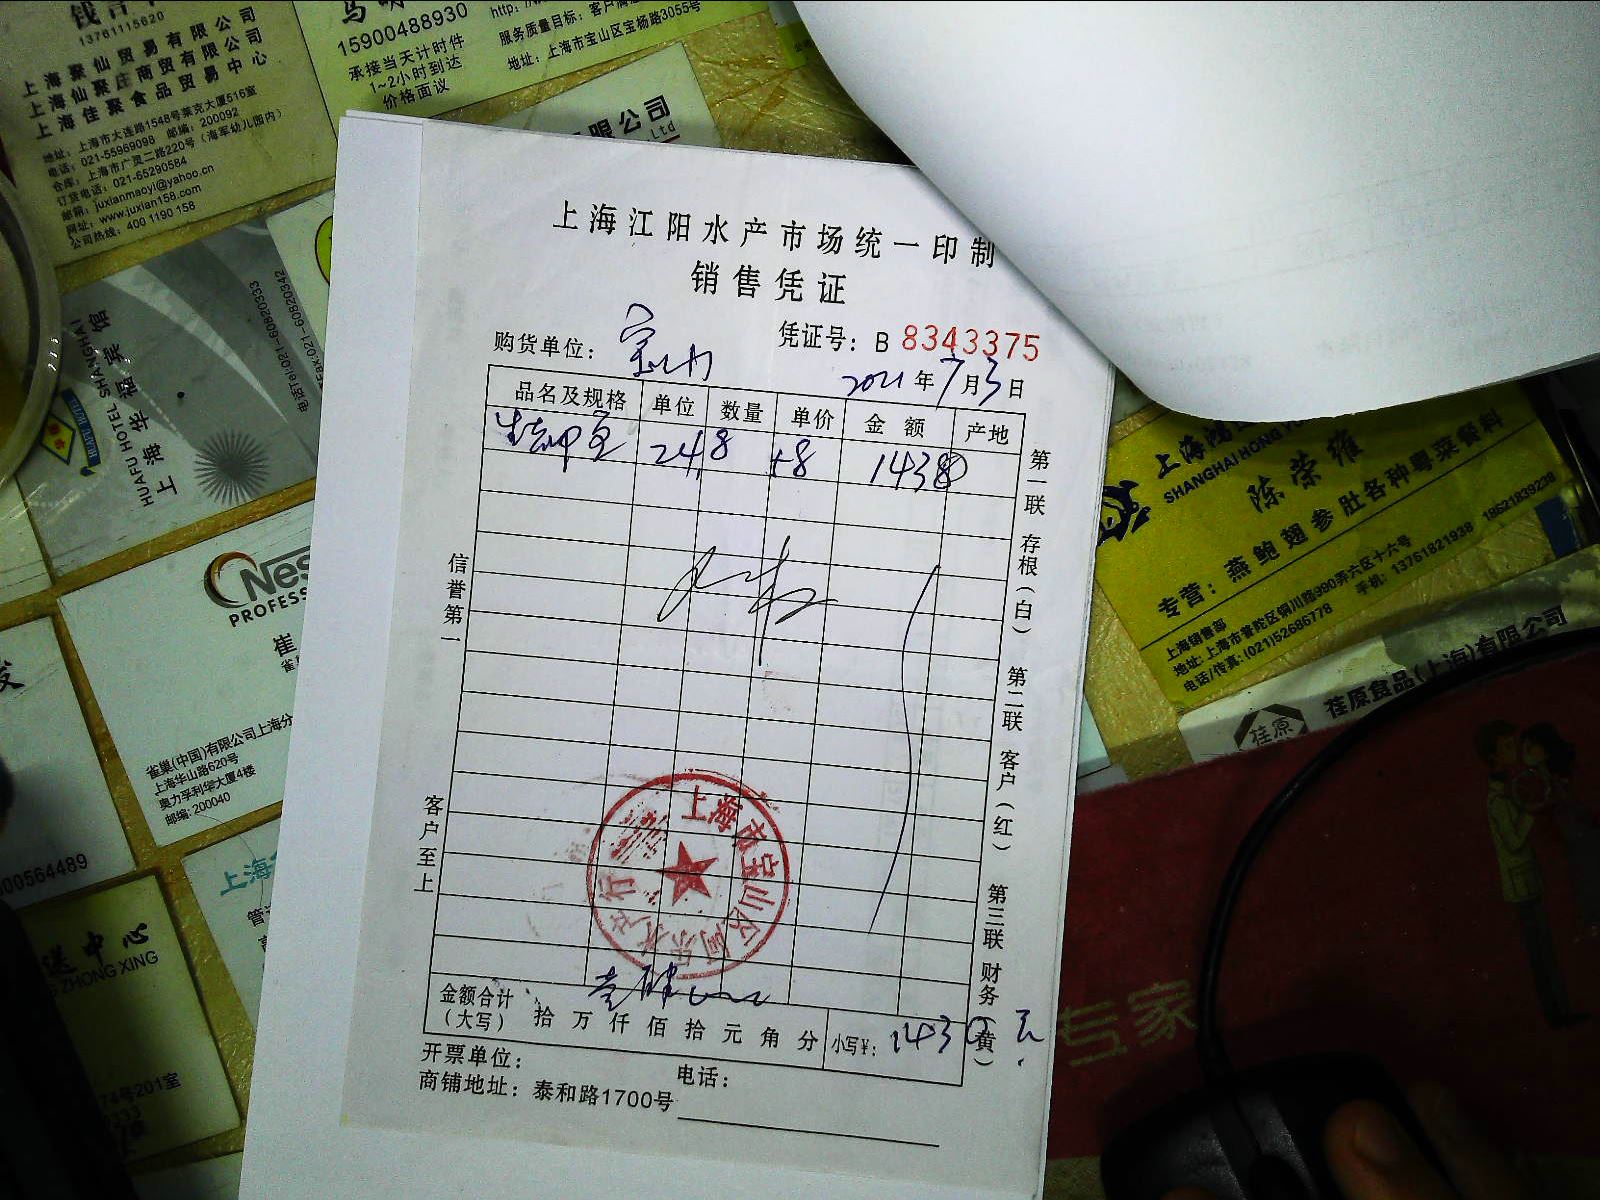 13761115620
上海聚仙贸易有限公司
上海仙聚庄商贸有限公司
上海佳聚食品贸易中心
地址：上海市大连路1548号莱克大厦516室
电话：021-55969098 邮编：200092
仓库：上海市广灵二路220号（海军幼儿园内）
订货电话：021-65290584
邮箱：juxianmaoyi@yahoo.cn
网址：www.juxian158.com
公司热线：400 1190 158
15900488930
承接当天计时件
1~2小时到达
价格面议
http:
服务质量目标：客户满
地址：上海市宝山区宝杨路3055号
限公司
.Ltd
上海华福宾馆
HUAFU HOTEL SHANGHAI
电话Tel:021-60820333
Fax:021-60820342
Nes
PROFESS
崔
雀巢(中国)有限公司上海分
上海华山路620号
奥力孚利华大厦4楼
邮编: 200040
00564489
上海
管
送中心
ZHONG XING
74号201室
上海江阳水产市场统一印制
销售凭证
购货单位：宝山
凭证号：B 8343375
2021年7月3日
品名及规格 单位 数量 单价 金额 产地
248 58 1438
信誉第一
客户至上
第一联 存根（白） 第二联 客户（红） 第三联 财务（黄）
上海市宝山区 水产行
金额合计（大写） 拾万仟佰拾元角分 小写¥: 1430元
开票单位：
电话：
商铺地址：泰和路1700号
上海鸿
SHANGHAI HONG YU
陈荣雄
专营：燕鲍翅参肚各种粤菜餐料
上海销售部
地址: 上海市普陀区铜川路990弄六区十六号
电话/传真: (021)52686778 手机: 13761821938 18621839238
荏原食品(上海)有限公司
荏原
专家